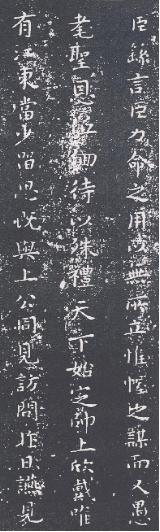 臣繇言臣力命之用以無所立惟幄之謀而又愚
耄聖恩低徊待以殊禮天下始定帥上欣戴唯
有江東當少留思既與上公同見訪問昨日疏見